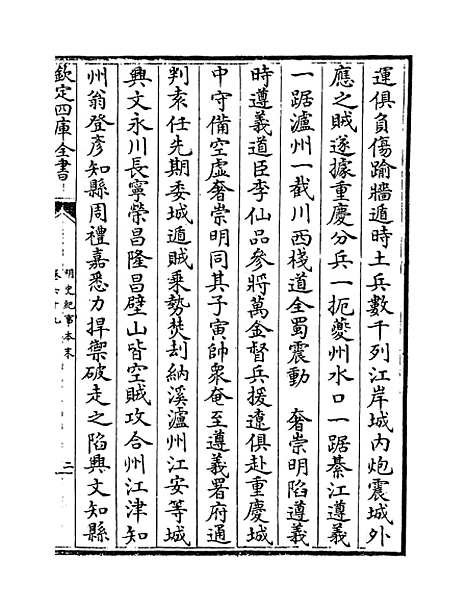 運俱負傷踰牆遁時土兵數千列江岸城内炮震城外
應之賊遂據重慶分兵一扼夔州水口一踞綦江遵義
一踞瀘州一截川西棧道全蜀震動　奢崇明陷遵義
時遵義道臣李仙品參將萬金督兵援遼俱赴重慶城
中守備空虚奢崇明同其子寅帥衆奄至遵義署府通
判袁任先期委城遁賊乘勢焚刦納溪瀘州江安等城
興文永川長寧榮昌隆昌璧山皆空賊攻合州江津知
州翁登彦知縣周禮嘉悉力捍禦破走之陷興文知縣
欽定四庫全書
明史紀事本末
卷六十九
二